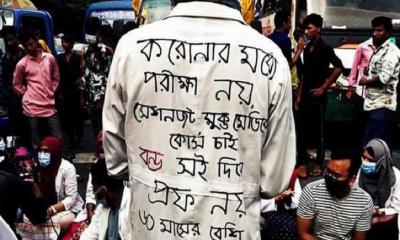 করোনার মধ্যে
পরীক্ষা নয়
সেশনজট মুক্ত মেডিকেল
কোর্স চাই
বন্ড সই দিয়ে
প্রফ নয়
৬০ মাসের বেশি